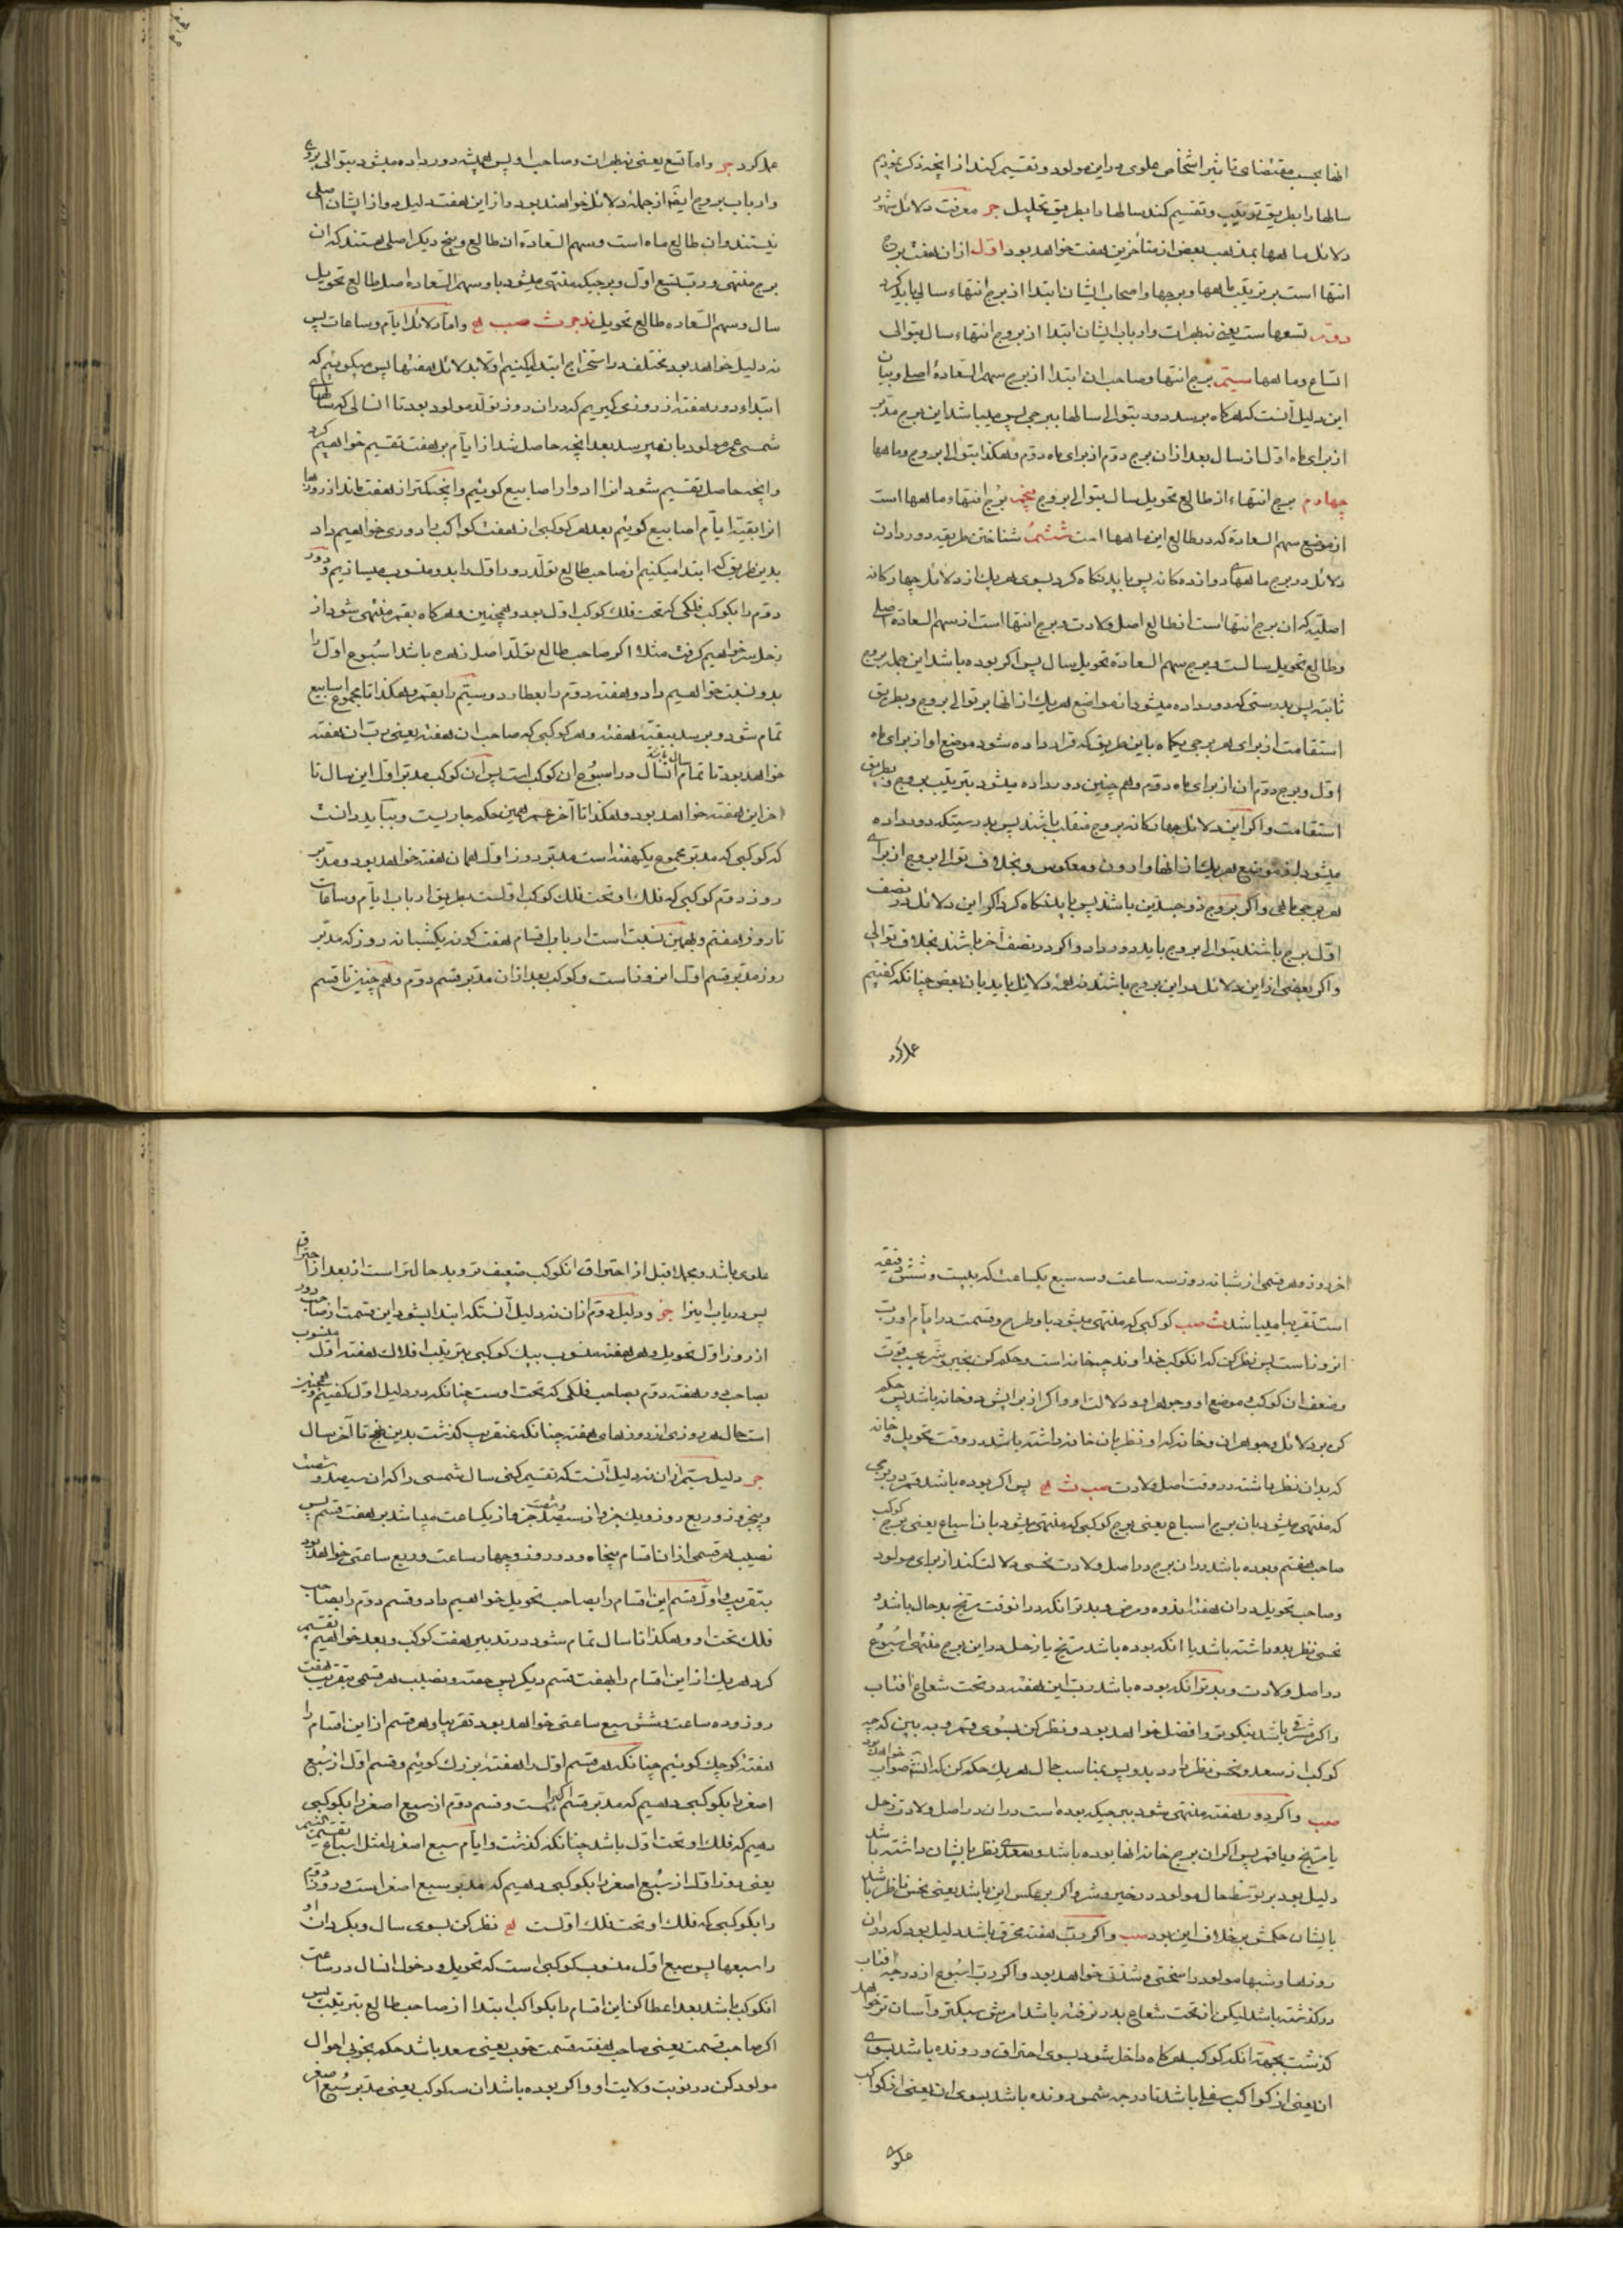 انها بحسب مقتضای تاثیر اشخاص علوی در این مولود و تقسیم کند از آنچه ذکر نمودیم
سالها را بطریق ترتیب و تقسیم کند سالها را بطریق تحلیل معرفت دلائل شهور
دلائل ماهها بمذهب بعضی از متأخرین هفت خواهد بود اول از ان هفت برج
انتها است بر ترتیب ماهها و برجها و اصحاب ایشان ابتدا از برج انتهاء سالی باید کرد
دویم تسعها ست یعنی نبطرات و ارباب ایشان ابتدا از بروج انتهاء سال بتوالی
اتساع و ماهها سیتم برج انتها و صاحب ان ابتدا از برج سهم السعادة اصلی و بیان
این دلیل آنست که هرکاه برسد دور بتوالی سالها ببرجی پس میباشد این برج مدبر
از برای ماه اول از سال بعد از ان برج دوم از برای ماه دوم و هکذا بتوالی بروج و ماهها
چهارم برج انتهاء از طالع تحویل سال بتوالی بروج پنجم برج انتهاء ماهها است
از موضع سهم السعادة که در طالع این ماهها است ششم شناختن طریقه دور دادن
دلائل در بروج ماههای دوازده کانه پس باید نکاه کرد بسوی هر یک از دلائل چهارکانه
اصلیه که ان برج انتها است از طالع اصل ولادت و برج انتها است از سهم السعادة اصلی
و طالع تحویل سالست و برج سهم السعادة تحویل سال پس اکر بوده باشد این جمله بروج
ثابته پس بدرستی که دور داده میشود از مواضع هر یک از انها بر توالی بروج و بطریق
استقامت از برای هر برجی یکماه باین طریق که قرار داده شود موضع او از برای ماه
اول و برج دوم ان از برای ماه دوم و هم چنین دور داده میشود بترتیب بروج و بطریق
استقامت و اکر این دلائل چهارکانه بروج منقلب باشند پس بدرستیکه دور داده
میشود از موضع هر یک از انها وارون و معکوس و بخلاف توالی بروج از برای
هر برجی ماهی و اکر بروج ذو جسدین باشد پس باید نکاه کرد اکر این دلائل در نصف
اول برج باشند بتوالی بروج باید دور داد و اکر در نصف آخر باشند بخلاف توالی
و اکر بعضی از این دلائل در این بروج باشند نه همه دلایل باید بان بعض چنانکه کفتیم
عمل کرد
عمل کرد و اما تسع یعنی نبطرات و صاحب او پس همیشه دور داده میشود بتوالی بروج
و ارباب بروج ایضا از جمله دلائل خواهند بود و از این هفت دلیل دو از ایشان اصلی
نیستند و ان طالع ماه است و سهم السعادة ان طالع و پنج دیکر اصلی هستند که ان
برج منتهی و رب تسع اول و برجیکه منتهی میشود باو سهم السعاده اصل طالع تحویل
سال و سهم السعاده طالع تحویل و اما دلائل ایام و ساعات پس
نه دلیل خواهد بود مختلف در استخراج ابتدا میکنیم اولا بدلائل هفتها پس میکوئیم که
ابتداء دور هفته از روزی کیریم که در ان روز تولد مولود بوده تا انسالی که سالهای
شمسی عمر مولود بان میرسد بعد انچه حاصل شد از ایام بر هفت تقسیم خواهیم کرد
و انچه حاصل تقسیم شود انرا ادوار اصابیع کوئیم و انچه کمتر از هفت ماند از روزها
انرا بقیة ایام اصابیع کوئیم بعد هر کوکبی از هفت کواکب را دوری خواهیم داد
بدین طریق که ابتدا میکنیم از صاحب طالع تولد دور اول را بدو منسوب میسازیم و دور
دوم را بکوکب فلکی که تحت فلک کوکب اول بود و همچنین و هرکاه بقمر منتهی شود از
زحل سر خواهیم کرفت مثلا اکر صاحب طالع تولد اصل زهره باشد اسبوع اول را
بدو نسبت خواهیم داد و هفته دوم را بعطارد و سیتم را بقمر و هکذا تا مجموع اسابیع
تمام شود و برسد ببقیه هفته و هر کوکبی که صاحب ان هفته یعنی رب ان هفته
خواهد بود تا تمام انسال در اسبوع ان کوکب است پس ان کوکب مدبر اول این سال تا
اخر این هفته خواهد بود و هکذا تا آخر عمر همین حکم جاریست و بباید دانست
که کوکبی که مدبر مجموع یکهفته است مدبر روز اول همان هفته خواهد بود و مدبر
روز دوم کوکبی که فلک او تحت فلک کوکب اولست بطریق ارباب ایام و ساعات
تا روز هفتم و بهمین نسبت است ارباب اقسام هفت کونه یکشبانه روز که مدبر
روز مدبر قسم اول انروز است و کوکب بعد از ان مدبر قسم دوم و هم چنین تا قسم
اخر روز و هر قسمی از شبانه روز سه ساعت و سه سبع یکساعتکه بیست و شش دقیقه
است تقریبا میباشد کوکبی که منتهی میشود باو طرح و قسمت در ایام او رب
انروز است پس نظر کن که انکوکب خداوند چه خانه است و حکم کن بخیر و شر بحسب قوت
و ضعف ان کوکب و موضع او و جوهر او و دلالت او و اکر از برایش دو خانه باشد پس حکم
کن بر دلائل و جوهر ان و خانه که او نظر بان خانه داشته باشد در وقت تحویل و خانه
که بدان نظر داشته در وقت اصل ولادت پس اکر بوده باشد قمر در برجی
که منتهی میشود بان برج اسباع یعنی برج کوکبی که منتهی میشود بان اسباع یعنی برج کوکب
صاحب هفتم و بوده باشد در ان برج در اصل ولادت نحسی دلالت کند از برای مولود
و صاحب تحویل در ان هفته اندوه و مرض و بدتر انکه در انوقت مریخ بدحال باشد و
نحسی نظر بدو داشته باشد یا انکه بوده باشد مریخ یا زحل در این برج منتهی اسبوع
در اصل ولادت و بدتر انکه بوده باشد رب این هفته در تحت شعاع افتاب
و اکر مشرقی باشد نیکوتر و افضل خواهد بود و نظر کن بسوی قمر و به بین که چه
کوکب از سعد و نحس نظر دارد بدو پس بمناسب حال هر یک حکم کن که انشاء صواب خواهد بود
و اکر دور هفته منتهی شود ببرجیکه بوده است در ان در اصل ولادت زحل
یا مریخ و یا قمر پس اکر ان برج خانه انها بوده باشد و سعدی نظر بایشان داشته باشد
دلیل بود بر توسط حال مولود در خیر و شر و اکر بر عکس این باشد یعنی نحس ناظر باشد
بایشان حکمش بر خلاف این بود و اکر رب هفته محترق باشد دلیل بود که در ان
روزها و شبها مولود را سختی و شدت خواهد بود و اکر رب اسبوع از درجه افتاب
در کذشته باشد لیکن از تحت شعاع بدر نرفته باشد امرش سبکتر و آسان تر خواهد
کذشت بجهة انکه کوکب هرکاه داخل شود بسوی احتراق و رونده باشد بسوی
ان یعنی از کواکب سفلی باشد تا درجه شمس رونده باشد بسوی ان یعنی از کواکب
علوی
علوی باشد و مجملا قبل از احتراق انکوکب ضعیف تر و بدحالتر است از بعد از احتراق
پس دریاب اینرا و دلیل دوم از ان نه دلیل آنستکه ابتدا بشود این قسمت از صاحب دور
از روز اول تحویل و هر هفته منسوب بیک کوکبی بترتیب افلاک هفته اول منسوب
بصاحب دور و هفته دوم بصاحب فلکی که تحت اوست چنانکه در دلیل اول کفتیم و همچنین
است حال هر روزی از روزهای هفته چنانکه عنقریب کذشت بدین نهج تا آخر سال
دلیل سیتم از ان نه دلیل آنست که تقسیم کنی سال شمسی را که ان سیصد و شصت
و پنجروز و ربع روز و یک جزو از سیصد و شصت جزو از یکساعت میباشد بر هفت قسم پس
نصیب هر قسمی از ان اقسام پنجاه و دو روز و چهار ساعت و ربع ساعتی خواهد بود
بتقریب و اول قسم این اقسام را بصاحب تحویل خواهیم داد و قسم دوم را بصاحب
فلک تحت او و هکذا تا سال تمام شود در تدبیر هفت کوکب و بعد خواهیم تقسیم
کرد هر یک از این اقسام را بهفت قسم دیکر پس حصه و نصیب هر قسمی بتقریب هفت
روز و ده ساعت و شش سبع ساعتی خواهد بود تقریبا و هر قسم از این اقسام را
هفته کوچک کوئیم چنانکه هر قسم اول را هفته بزرک کوئیم و قسم اول از سبع
اصغر را بکوکبی دهیم که مدبر قسم اکبر است و قسم دوم از سبع اصغر را بکوکبی
دهیم که فلک او تحت اول باشد چنانکه کذشت و ایام سبع اصغر را مثل اسباع تقسیم کنیم
یعنی روز اول از سبع اصغر را بکوکبی دهیم که مدبر سبع اصغر است و روز دوم
را بکوکبی که فلک او تحت فلک اولست نظر کن بسوی سال و بکردان او
را سبعها پس سبع اول منسوب کوکبی است که تحویل و دخول انسال در ساعت
انکوکب باشد بعد اعطا کن این اقسام را بکواکب ابتدا از صاحب طالع بترتیب پس
اکر صاحب قسمت یعنی صاحب هفته قسمت خوب یعنی سعد باشد حکم بخوبی احوال
مولود کن در نوبت ولایت او و اکر بوده باشد ان کوکب یعنی مدبر سبع اصغر